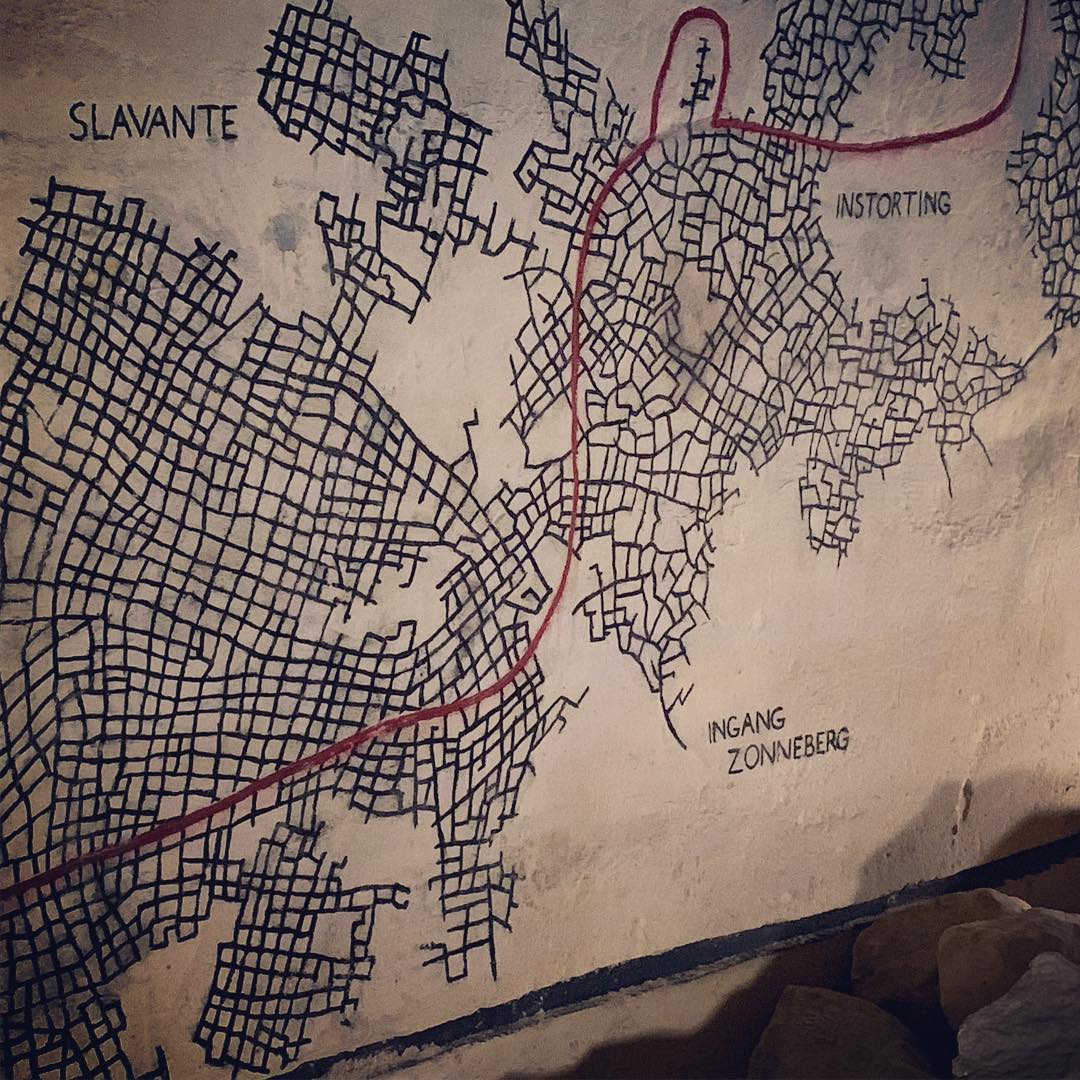 SLAVANTE
INSTORTING
INGANG
ZONNEBERG